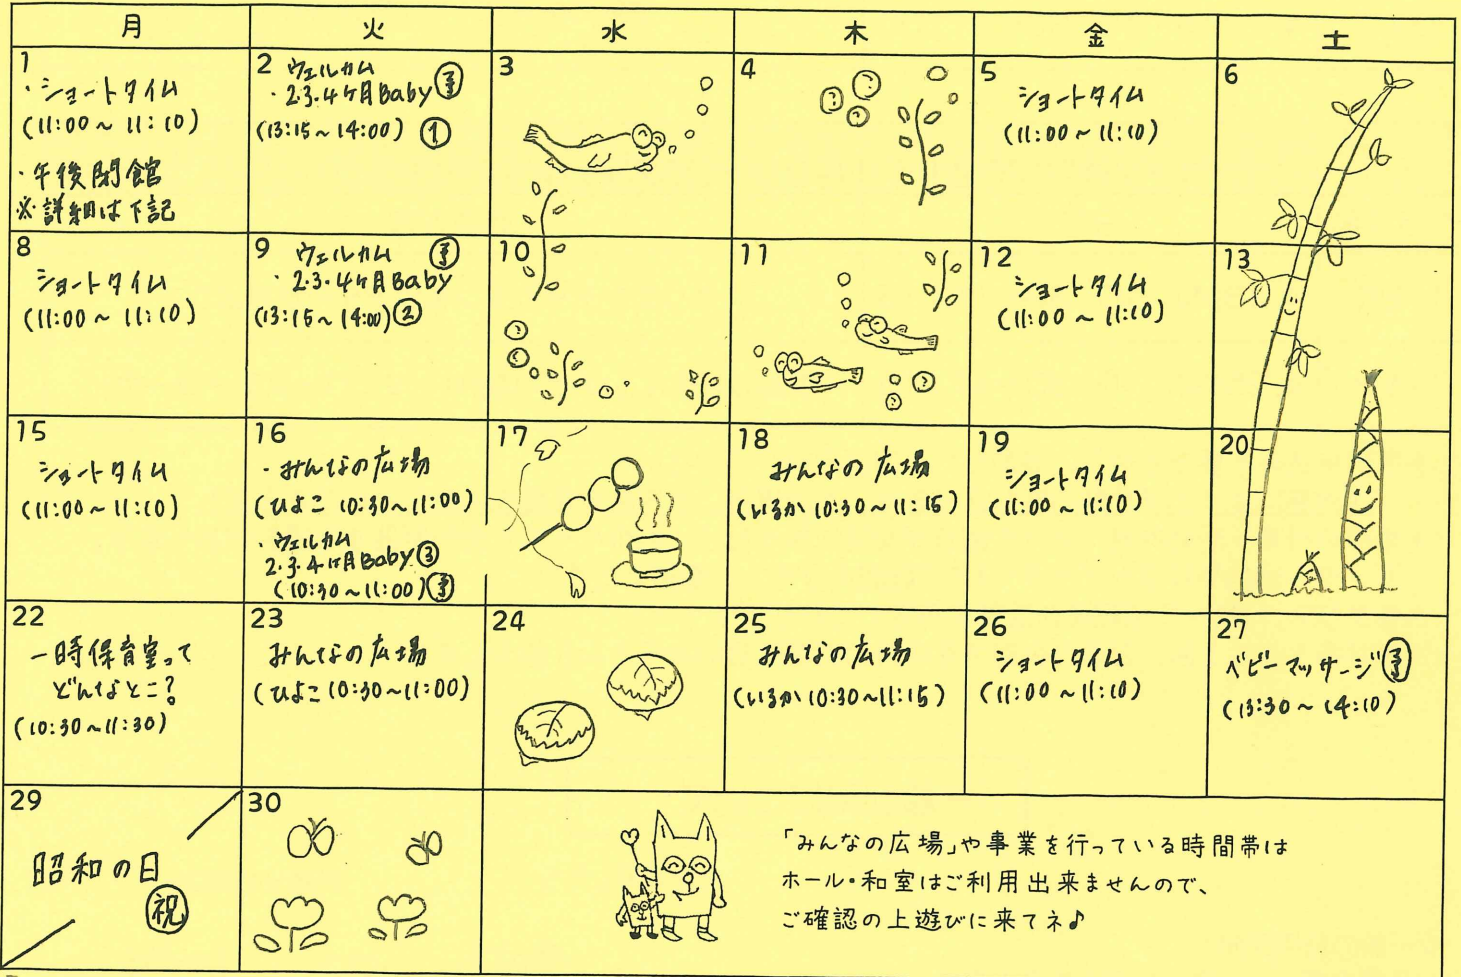 月 火 水 木 金 土
1
・ショートタイム
(11:00～11:10)
・午後閉館
※詳細は下記
2 ウェルカム
・2.3.4ヶ月Baby 予
(13:15～14:00) ①
3
4
5
ショートタイム
(11:00～11:10)
6
8
ショートタイム
(11:00～11:10)
9 ウェルカム 予
・2.3.4ヶ月Baby
(13:15～14:00)②
10
11
12
ショートタイム
(11:00～11:10)
13
15
ショートタイム
(11:00～11:10)
16
・みんなの広場
(ひよこ 10:30～11:00)
・ウェルカム
2.3.4ヶ月Baby③
(10:30～11:00)予
17
18
みんなの広場
(いるか 10:30～11:15)
19
ショートタイム
(11:00～11:10)
20
22
一時保育室って
どんなとこ？
(10:30～11:30)
23
みんなの広場
(ひよこ 10:30～11:00)
24
25
みんなの広場
(いるか 10:30～11:15)
26
ショートタイム
(11:00～11:10)
27
ベビーマッサージ予
(13:30～14:10)
29
昭和の日
祝
30
「みんなの広場」や事業を行っている時間帯は
ホール・和室はご利用出来ませんので、
ご確認の上遊びに来てネ♪